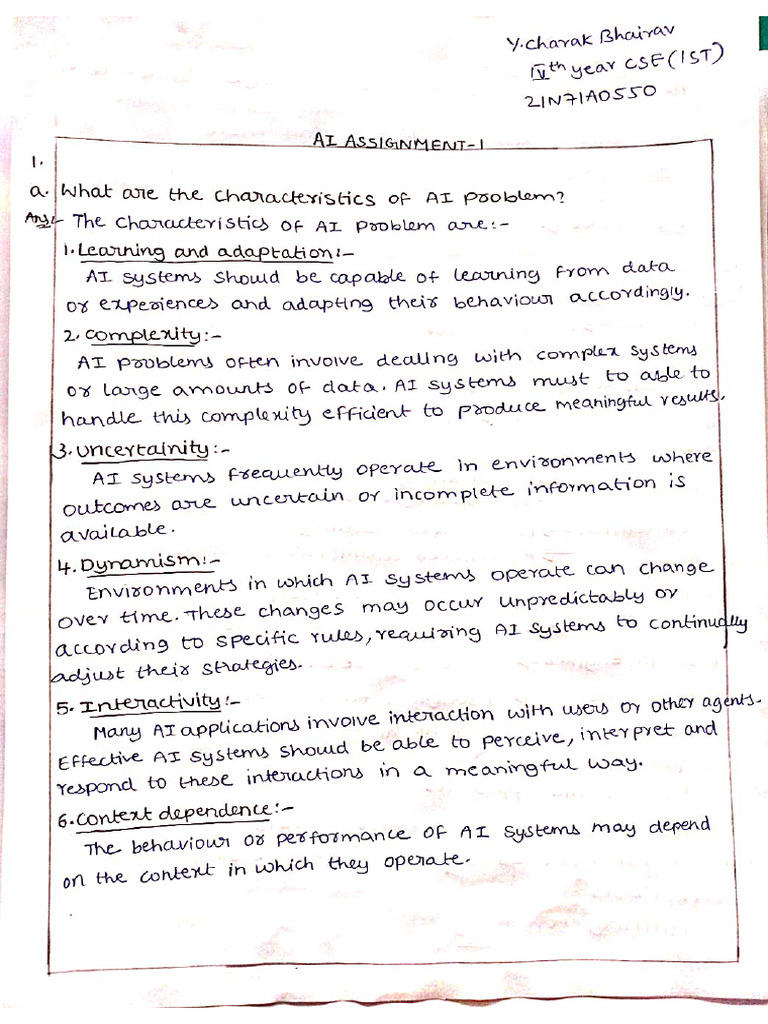 Y. Charak Bhairav
IVth year CSE (IST)
21N71A0550
AI ASSIGNMENT-1
1.
a. What are the characteristics of AI Problem?
Ans:- The characteristics of AI Problem are:-
1. Learning and adaptation:-
AI systems should be capable of learning from data
or experiences and adapting their behaviour accordingly.
2. Complexity:-
AI problems often involve dealing with complex systems
or large amounts of data. AI systems must to able to
handle this complexity efficient to produce meaningful results.
3. Uncertainity:-
AI systems frequently operate in environments where
outcomes are uncertain or incomplete information is
available.
4. Dynamism:-
Environments in which AI systems operate can change
over time. These changes may occur unpredictably or
according to specific rules, requiring AI systems to continually
adjust their strategies.
5. Interactivity:-
Many AI applications involve interaction with users or other agents.
Effective AI systems should be able to perceive, interpret and
respond to these interactions in a meaningful way.
6. Context dependence:-
The behaviour or performance of AI systems may depend
on the context in which they operate.